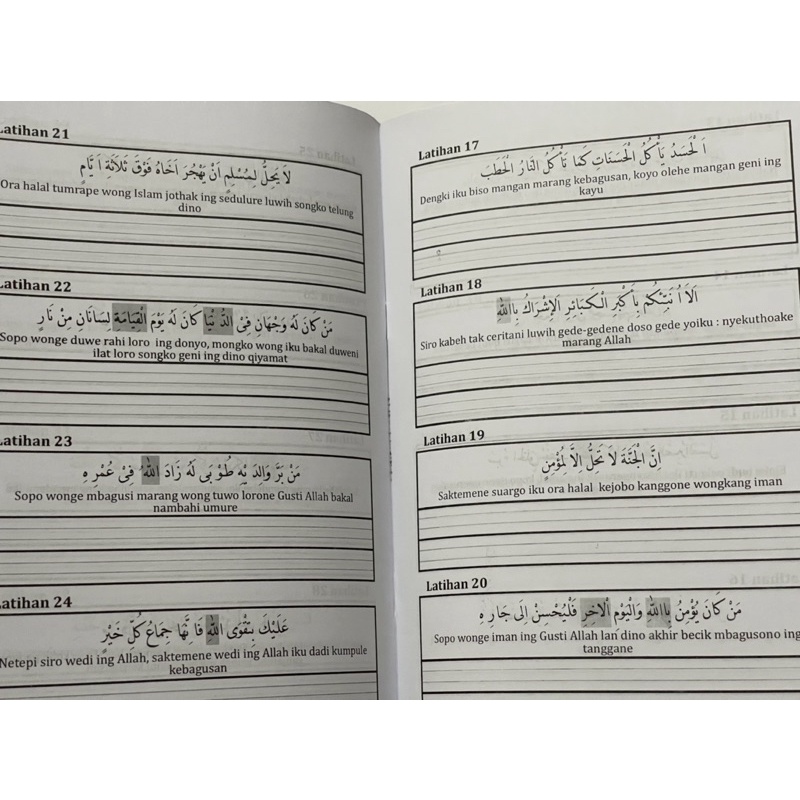 Latihan 17
اَلْحَسَدُ يَأْكُلُ الْحَسَنَاتِ كَمَا تَأْكُلُ النَّارُ الْحَطَبَ
Dengki iku biso mangan marang kebagusan, koyo olehe mangan geni ing
kayu
Latihan 18
اَلاَ اُنَبِّئُكُمْ بِأَكْبَرِ الْكَبَائِرِ اَلْإِشْرَاكُ بِاللهِ
Siro kabeh tak ceritani luwih gede-gedene doso gede yoiku : nyekuthoake
marang Allah
Latihan 19
اِنَّ الْجَنَّةَ لاَ تَحِلُّ اِلاَّ لِمُؤْمِنٍ
Saktemene suargo iku ora halal kejobo kanggone wongkang iman
Latihan 20
مَنْ كَانَ يُؤْمِنُ بِاللهِ وَالْيَوْمِ الْاٰخِرِ فَلْيُحْسِنْ اِلَى جَارِهِ
Sopo wonge iman ing Gusti Allah lan dino akhir becik mbagusono ing
tanggane
Latihan 21
لاَ يَحِلُّ لِمُسْلِمٍ اَنْ يَهْجُرَ اَخَاهُ فَوْقَ ثَلاَثَةِ اَيَّامٍ
Ora halal tumrape wong Islam jothak ing sedulure luwih songko telung
dino
Latihan 22
مَنْ كَانَ لَهُ وَجْهَانِ فِيْ الدُّنْيَا كَانَ لَهُ يَوْمَ الْقِيَامَةِ لِسَانَانِ مِنْ نَارٍ
Sopo wonge duwe rahi loro ing donyo, mongko wong iku bakal duweni
ilat loro songko geni ing dino qiyamat
Latihan 23
مَنْ بَرَّ وَالِدَيْهِ طُوْبَى لَهُ زَادَ اللهُ فِيْ عُمْرِهِ
Sopo wonge mbagusi marang wong tuwo lorone Gusti Allah bakal
nambahi umure
Latihan 24
عَلَيْكَ بِتَقْوَى اللهِ فَاِنَّهَا جِمَاعُ كُلِّ خَيْرٍ
Netepi siro wedi ing Allah, saktemene wedi ing Allah iku dadi kumpule
kebagusan